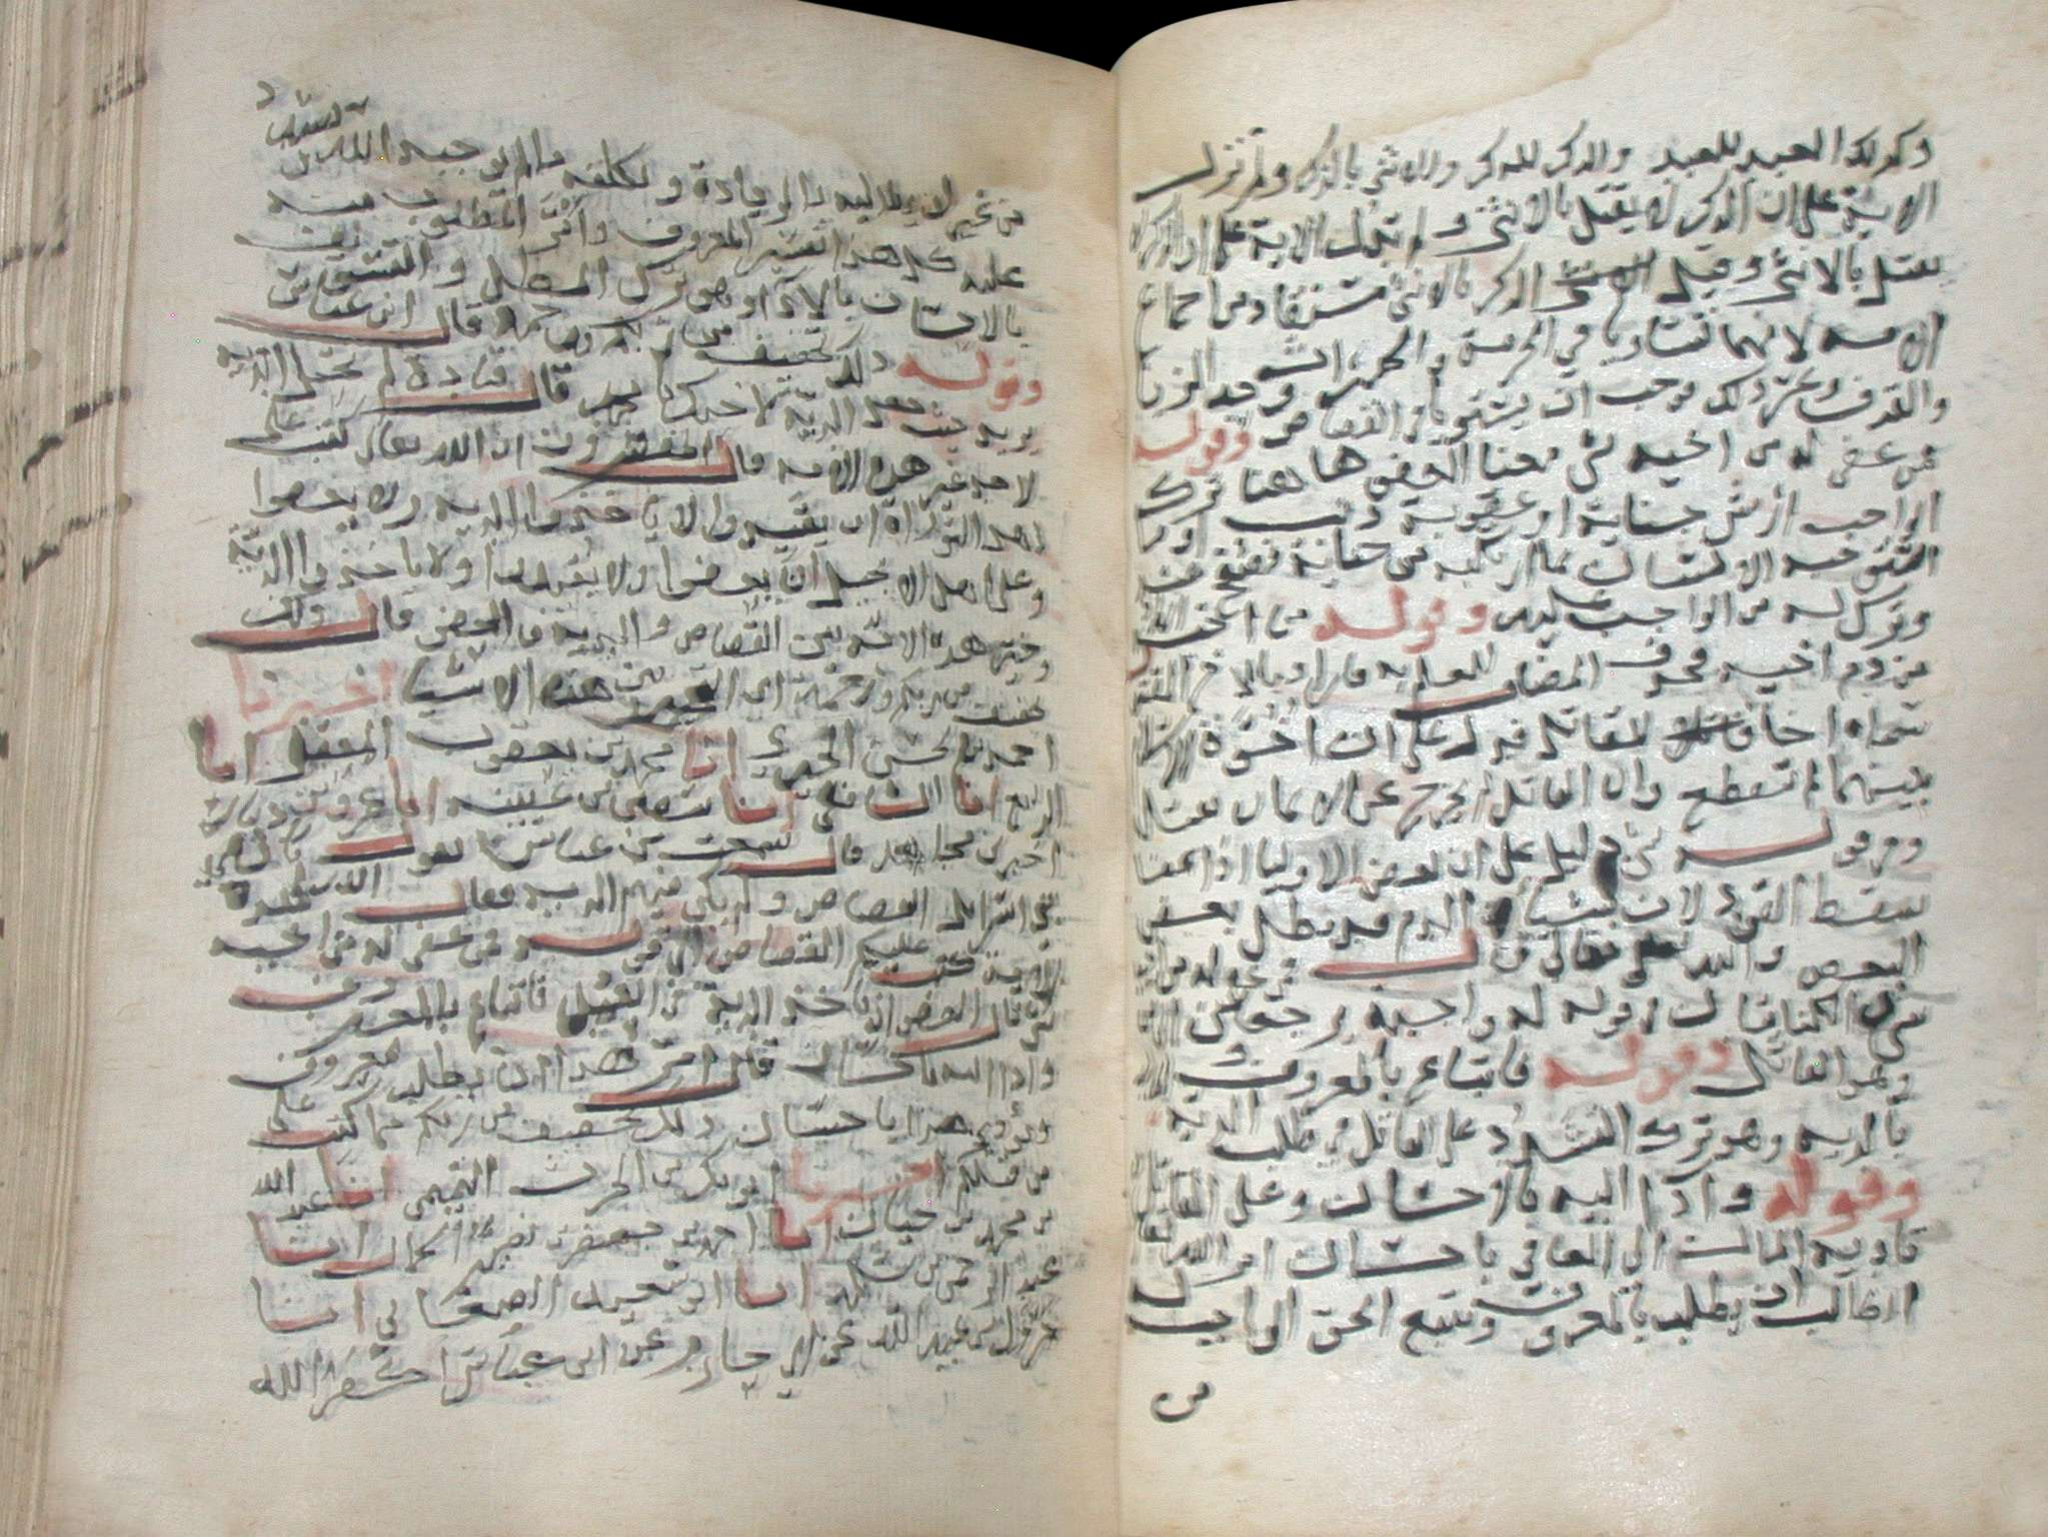 وكذلك العبد للعبد والذكر للذكر والانثى بالذكر ولم تنزل
الاية على ان الذكر لا يقتل بالانثى ولم تدل الاية على ان الذكر لا
يقتل بالانثى وقتل الذكر بالانثى مستفاد من اجماع
الامة لانهما تساويا في الحرمة والحد الزنا
والقذف وغير ذلك فوجب ان يستويا في القصاص وقوله
فمن عفي له من اخيه شي معنا العفو هاهنا ترك
الواجب ارش جناية او عقوبة ذنب او ما
استوجبه الانسان بما ارتكبه من جناية فصفح عنه
وترك له من الواجب عليه وقوله من اخيه
من دم اخيه فحذف المضاف للعلم به واراد بالاخ المقتول
سماه اخا للقاتل فدل على ان اخوة الاسلام
بينهما لم تنقطع وان القاتل لم يخرج عن الايمان بقتله
وفي قوله شي دليل على ان بعض الاوليا اذا عفا
سقط القود لان شيئا من الدم قد بطل بعفو
البعض والله تعالى قال فمن عفي له من اخيه
شي الكنايتان في قوله له واخيه يرجعان الى من
وهو القاتل وقوله فاتباع بالمعروف
بالدية وهو ترك التشدد على القاتل في طلب الدية
وقوله واداء اليه باحسان وعلى القاتل
تادية المال الى العافي باحسان امر الله تعالى
الطالب ان يطلب بالمعروف ويتبع الحق الواجب
من
من غير ان يطالبه بالزيادة ويكلفه ما لم يوجبه الله
عليه كل هذا تفسير المعروف وامر المطلوب منه
بالاحسان بالاداء وهو ترك المطل والتسويف
وقوله ذلك تخفيف من ربكم ورحمة قال ابن عباس
يريد حيث جعل الدية لامتك يا محمد قال قتادة لم تحل الدية
لاحد غير هذه الامة قال المفسرون ان الله تعالى كتب على
اهل التوراة ان يقيدوا ولا ياخذوا الدية ولا يعفوا
وعلى اهل الانجيل ان يعفوا ولا يقيدوا ولا ياخذوا الدية
وخير هذه الامة بين القصاص والدية والعفو فقال ذلك
تخفيف من ربكم ورحمة اي التخيير بين هذه الاشيا اخبرنا
احمد بن الحسن الحيري انا محمد بن يعقوب المعقلي انا
الربيع انا الشافعي انا سفين بن عيينه انا عمرو بن دينار
اخبرني مجاهد قال سمعت بن عباس يقول كان في
بني اسرايل القصاص ولم يكن فيهم الدية فقال الله لهذه
الامة كتب عليكم القصاص الى قوله فمن عفي له من اخيه
شي قال العفو ان ياخذ الدية في القتل فاتباع بالمعروف
واداء اليه باحسان قال امر هذا ان يطلب بمعروف
ويؤدي هذا باحسان ذلك تخفيف من ربكم مما كتب على
من قبلكم اخبرنا ابو بكر بن الحرث التميمي انا عبد الله
بن محمد بن حيان انا احمد بن جعفر بن نصر الجمال انا
عبد الرحمن بن سلمه انا ابو شعيب الاصفهاني انا
مغول بن عبيد الله عن جابر عن ابن عباس احفظ الله